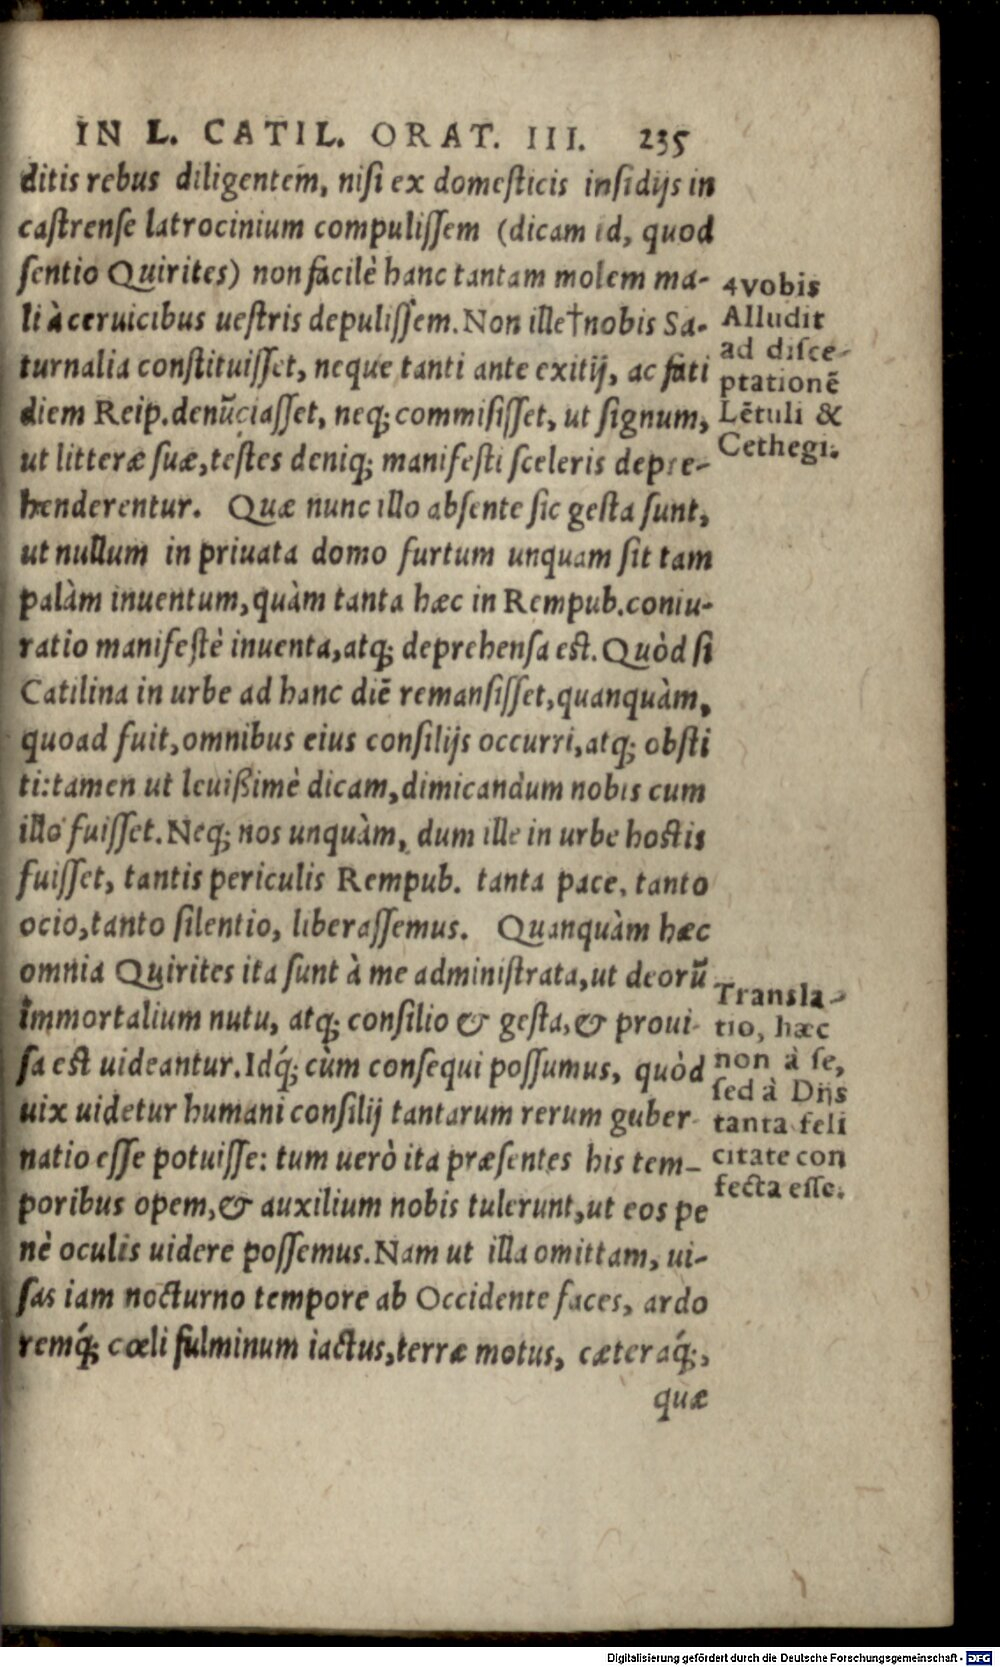 IN L. CATIL. ORAT. III. 235
ditis rebus diligentem, nisi ex domesticis insidijs in
castrense latrocinium compulissem (dicam id, quod
sentio Quirites) non facilè hanc tantam molem ma-
li à ceruicibus uestris depulissem. Non ille † nobis Sa-
turnalia constituisset, neque tanti ante exitij, ac fati
diem Reip. denũciasset, neq; commisisset, ut signum,
ut litteræ suæ, testes deniq; manifesti sceleris depre-
henderentur. Quæ nunc illo absente sic gesta sunt,
ut nullum in priuata domo furtum unquam sit tam
palàm inuentum, quàm tanta hæc in Rempub. coniu-
ratio manifestè inuenta, atq; deprehensa est. Quòd si
Catilina in urbe ad hanc diẽ remansisset, quanquàm,
quoad fuit, omnibus eius consilijs occurri, atq; obsti
ti: tamen ut leuißimè dicam, dimicandum nobis cum
illo fuisset. Neq; nos unquàm, dum ille in urbe hostis
fuisset, tantis periculis Rempub. tanta pace, tanto
ocio, tanto silentio, liberassemus. Quanquàm hæc
omnia Quirites ita sunt à me administrata, ut deorũ
immortalium nutu, atq; consilio & gesta, & proui-
sa est uideantur. Idq́; cùm consequi possumus, quòd
uix uidetur humani consilij tantarum rerum guber-
natio esse potuisse: tum uerò ita præsentes his tem-
poribus opem, & auxilium nobis tulerunt, ut eos pe
nè oculis uidere possemus. Nam ut illa omittam, ui-
sas iam nocturno tempore ab Occidente faces, ardo
remq́; cœli fulminum iactus, terræ motus, cæteraq́;,
quæ
4 vobis
Alludit
ad disce-
ptationẽ
Lẽtuli &
Cethegi.
Transla-
tio, hæc
non à se,
sed à Diis
tanta feli
citate con
fecta esse.
Digitalisierung gefördert durch die Deutsche Forschungsgemeinschaft - DFG